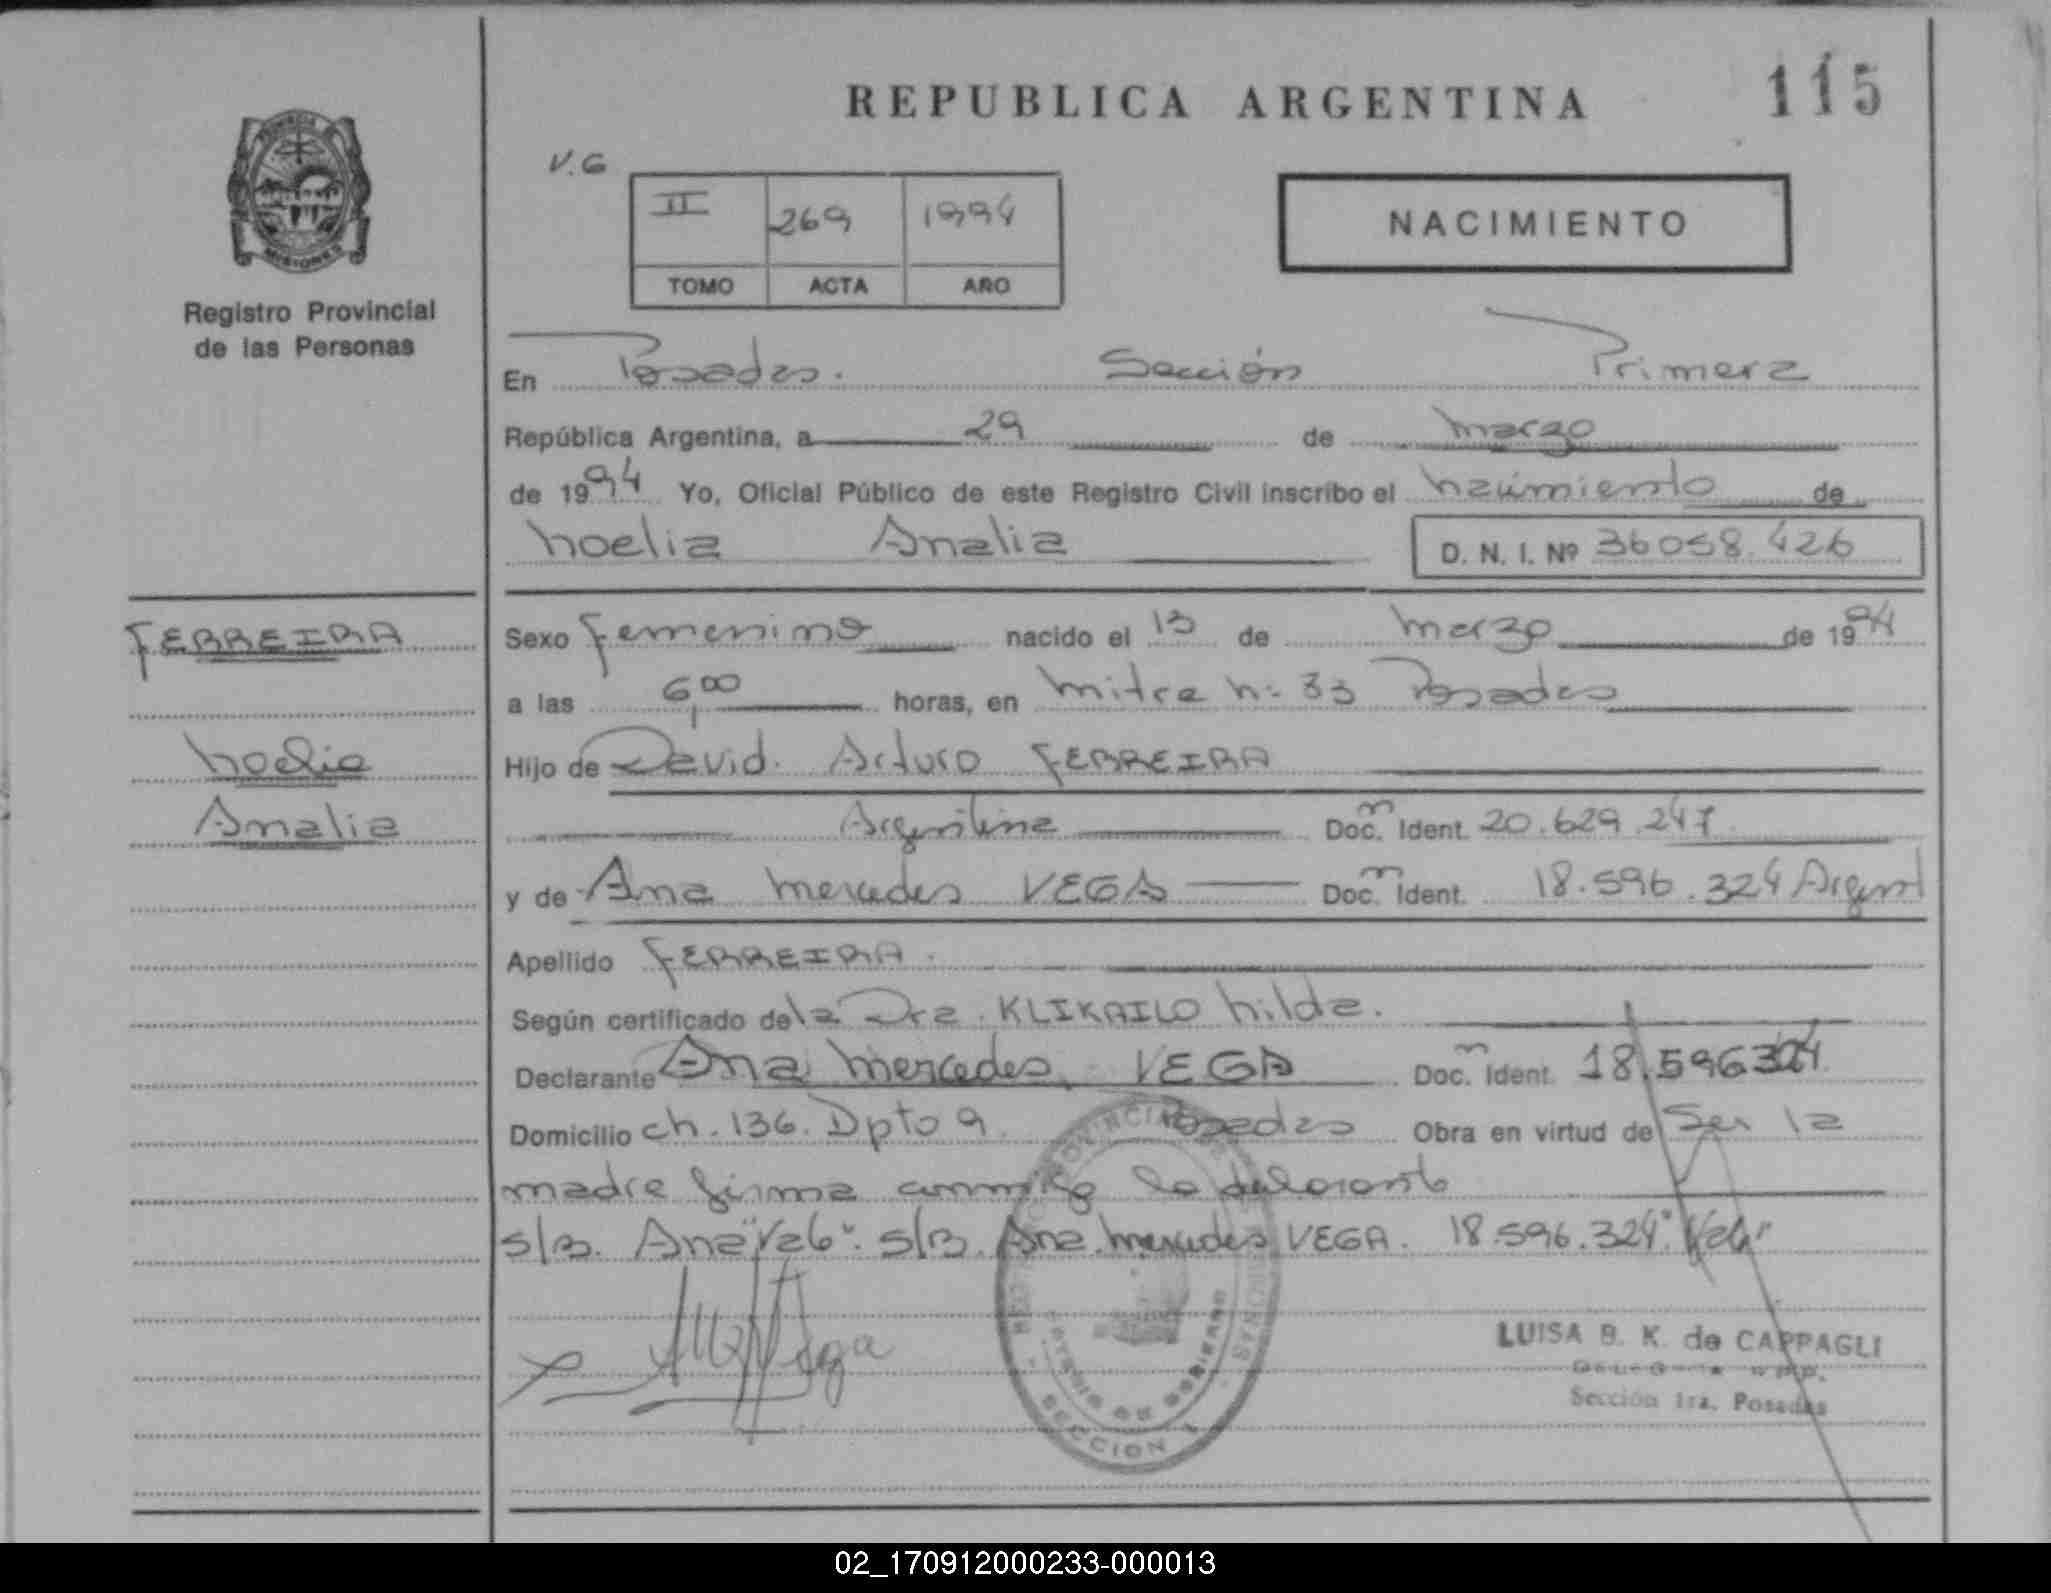 REPUBLICA ARGENTINA
115
V.G
II 269 1994
TOMO ACTA AÑO
NACIMIENTO
PROVINCIA DE
MISIONES
Registro Provincial
de las Personas
En Posadas. Sección Primera
República Argentina, a 29 de marzo
de 1994 Yo, Oficial Público de este Registro Civil inscribo el nacimiento de
Noelia Analia D. N. I. Nº 36058.426
FERREIRA
Noelia
Analia
Sexo femenino nacido el 13 de marzo de 1994
a las 6,00 horas, en Mitre n: 33 Posadas
Hijo de David Arturo FERREIRA
Argentina Doc. Ident. 20.629.247
y de Ana Mercedes VEGA Doc. Ident. 18.596.324 Argent
Apellido FERREIRA.
Según certificado de la Dra. KLIKAILO hilda.
Declarante Ana Mercedes VEGA Doc. Ident. 18.596324
Domicilio ch. 136. Dpto 9. Posadas Obra en virtud de Ser la
madre firma conmigo la declarante
s/B. Ana "Vale". s/B. Ana Mercedes VEGA. 18.596.324 "Vale"
SECCION 1
LUISA B. K. de CAPPAGLI
Sección 1ra. Posadas
02_170912000233-000013